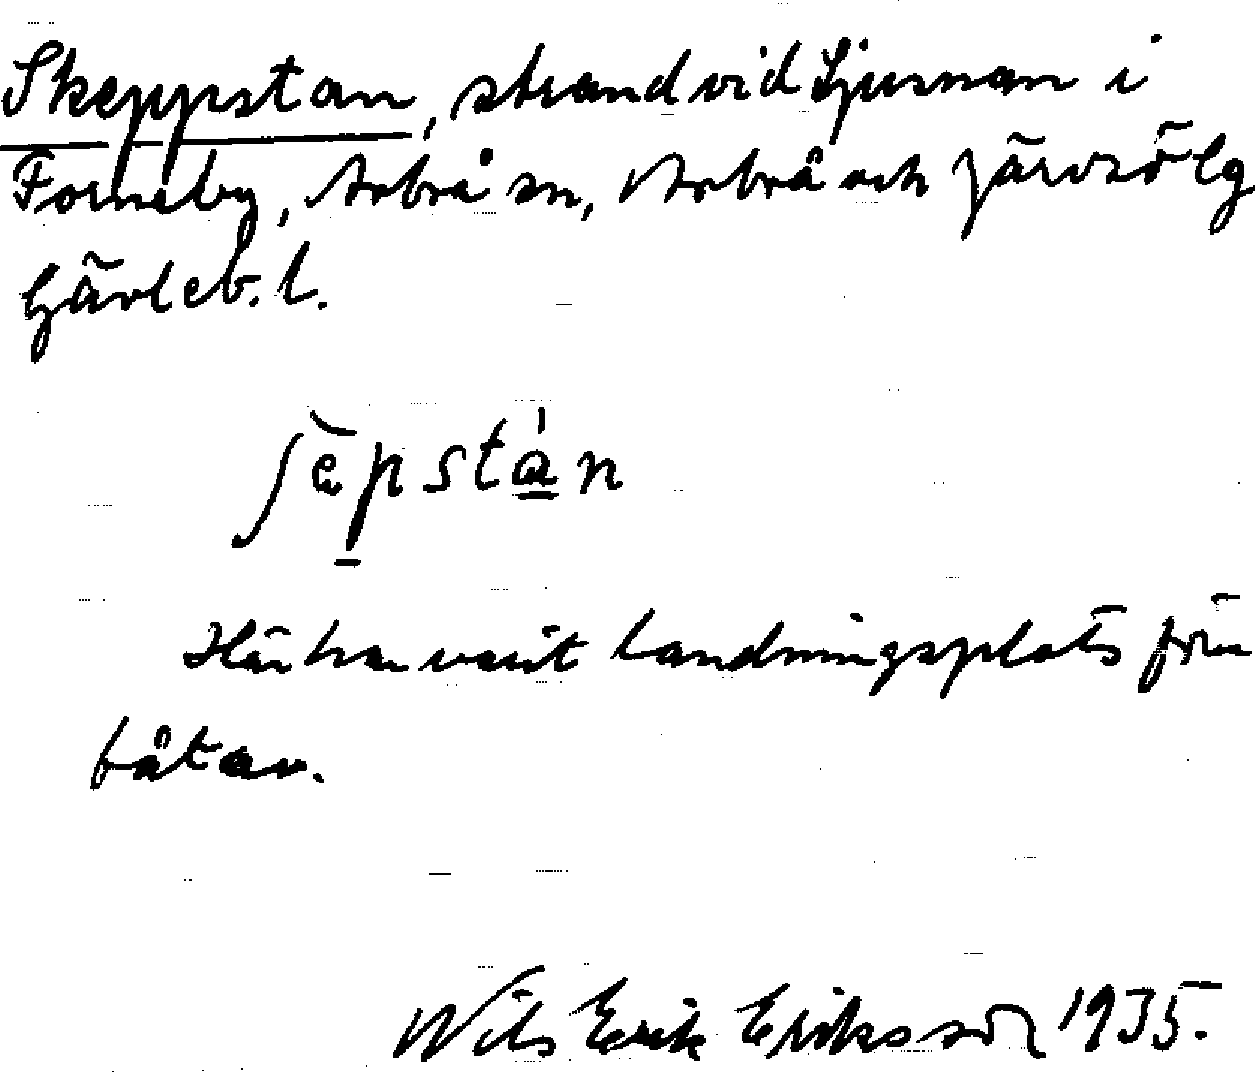 Skeppstan, strand vid Ljusnan i
Forneby, Arbrå sn, Arbrå och Järvsö lg
Gävleb. l.
ʃèpstán
Här har varit landningsplats för
båtar.
Nils Erik Eriksson 1935.